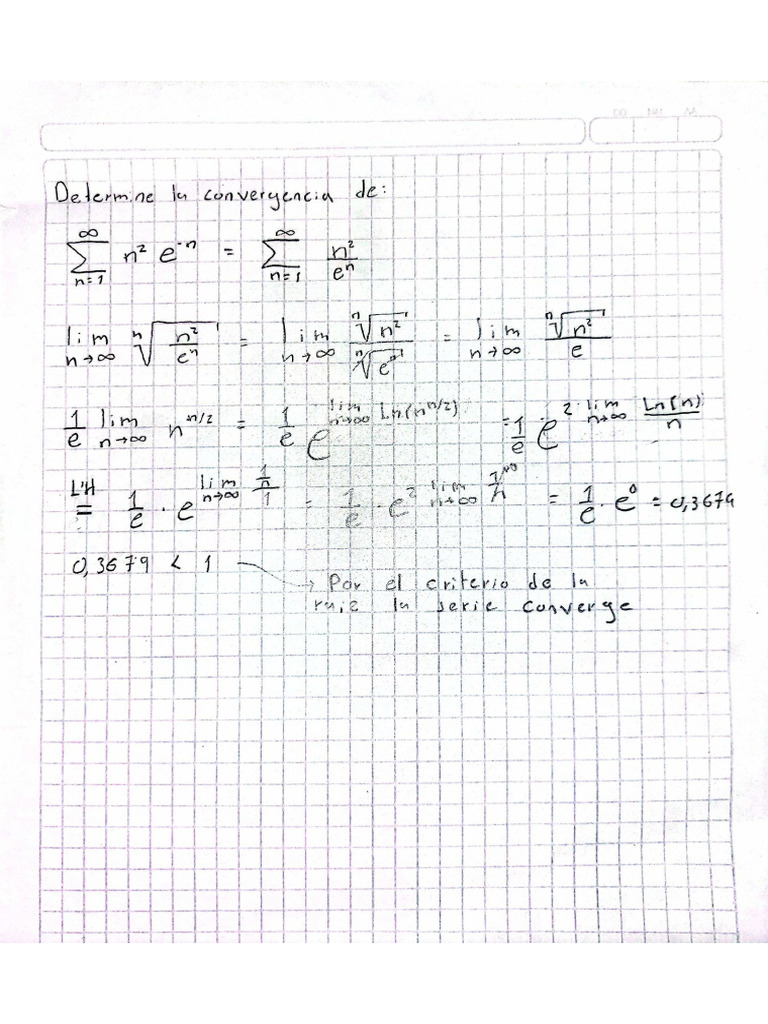 Determine la convergencia de:
∞∑n=1 n² e⁻ⁿ = ∞∑n=1 n²/eⁿ
lim n→∞ ⁿ√(n²/eⁿ) = lim n→∞ ⁿ√(n²)/ⁿ√(eⁿ) = lim n→∞ ⁿ√(n²)/e
1/e lim n→∞ n^(n/2) = 1/e e^(lim n→∞ Ln(n^(n/2))) = 1/e e^(2·lim n→∞ Ln(n)/n)
L'H = 1/e · e^(lim n→∞ (1/n)/1) = 1/e · e^(2 lim n→∞ 1/n) = 1/e · e⁰ = 0,3679
0,3679 < 1 → Por el criterio de la
raiz la serie converge